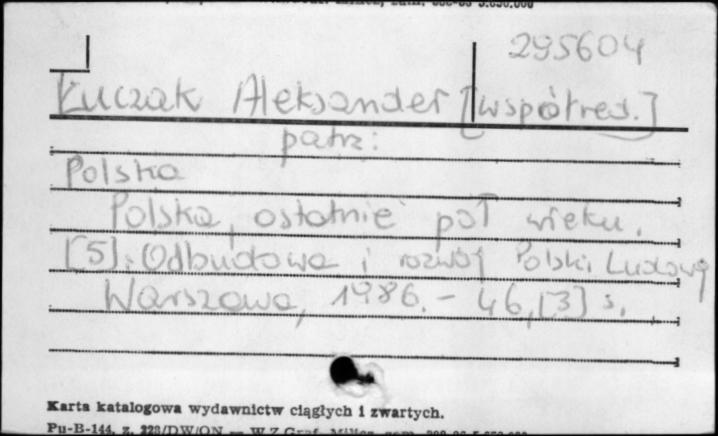 295604
Kuczak Aleksander [współred.]
patrz:
Polska
Polska, ostatnie pół wieku.
[5]: Odbudowa i rozwój Polski Ludowej
Warszawa, 1986. - 46,[3] s.
Karta katalogowa wydawnictw ciągłych i zwartych.
Pu-B-144, z. 228/DW/ON — W.Z.Graf.